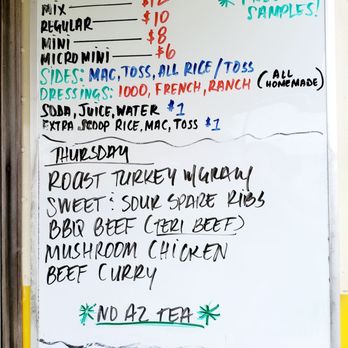 MIX $12
SAMPLES!
REGULAR $10
MINI $8
MICRO MINI $6
SIDES: MAC, TOSS, ALL RICE / TOSS
DRESSINGS: 1000, FRENCH, RANCH (ALL HOMEMADE)
SODA, JUICE, WATER $1
EXTRA SCOOP RICE, MAC, TOSS $1
THURSDAY
ROAST TURKEY W/GRAVY
SWEET : SOUR SPARE RIBS
BBQ BEEF (TERI BEEF)
MUSHROOM CHICKEN
BEEF CURRY
*NO AZ TEA*